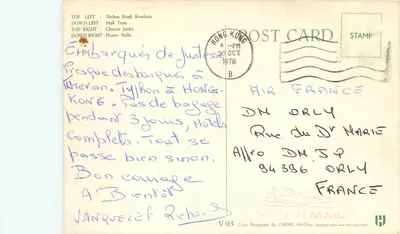 TOP LEFT Nathan Road, Kowloon
DOWN LEFT Peak Tram
TOP RIGHT Chinese Junks.
DOWN RIGHT Flower Stalls
POST CARD
STAMP
HONG KONG
6 -PM
30 OCT
1978
B
Embarqués de justesse
Presque débarqués à
Typhon à HONG-
KONG. Pas de bagage
pendant 3 jours, Hôtels
complets. Tout se
passe bien sinon.
Bon courage
A Bientôt
AIR FRANCE
DM ORLY
Rue du Dr MARIE
DM JQ
94396 ORLY
FRANCE
V 03 Color Photograph By CHENG Hn-Okay
H